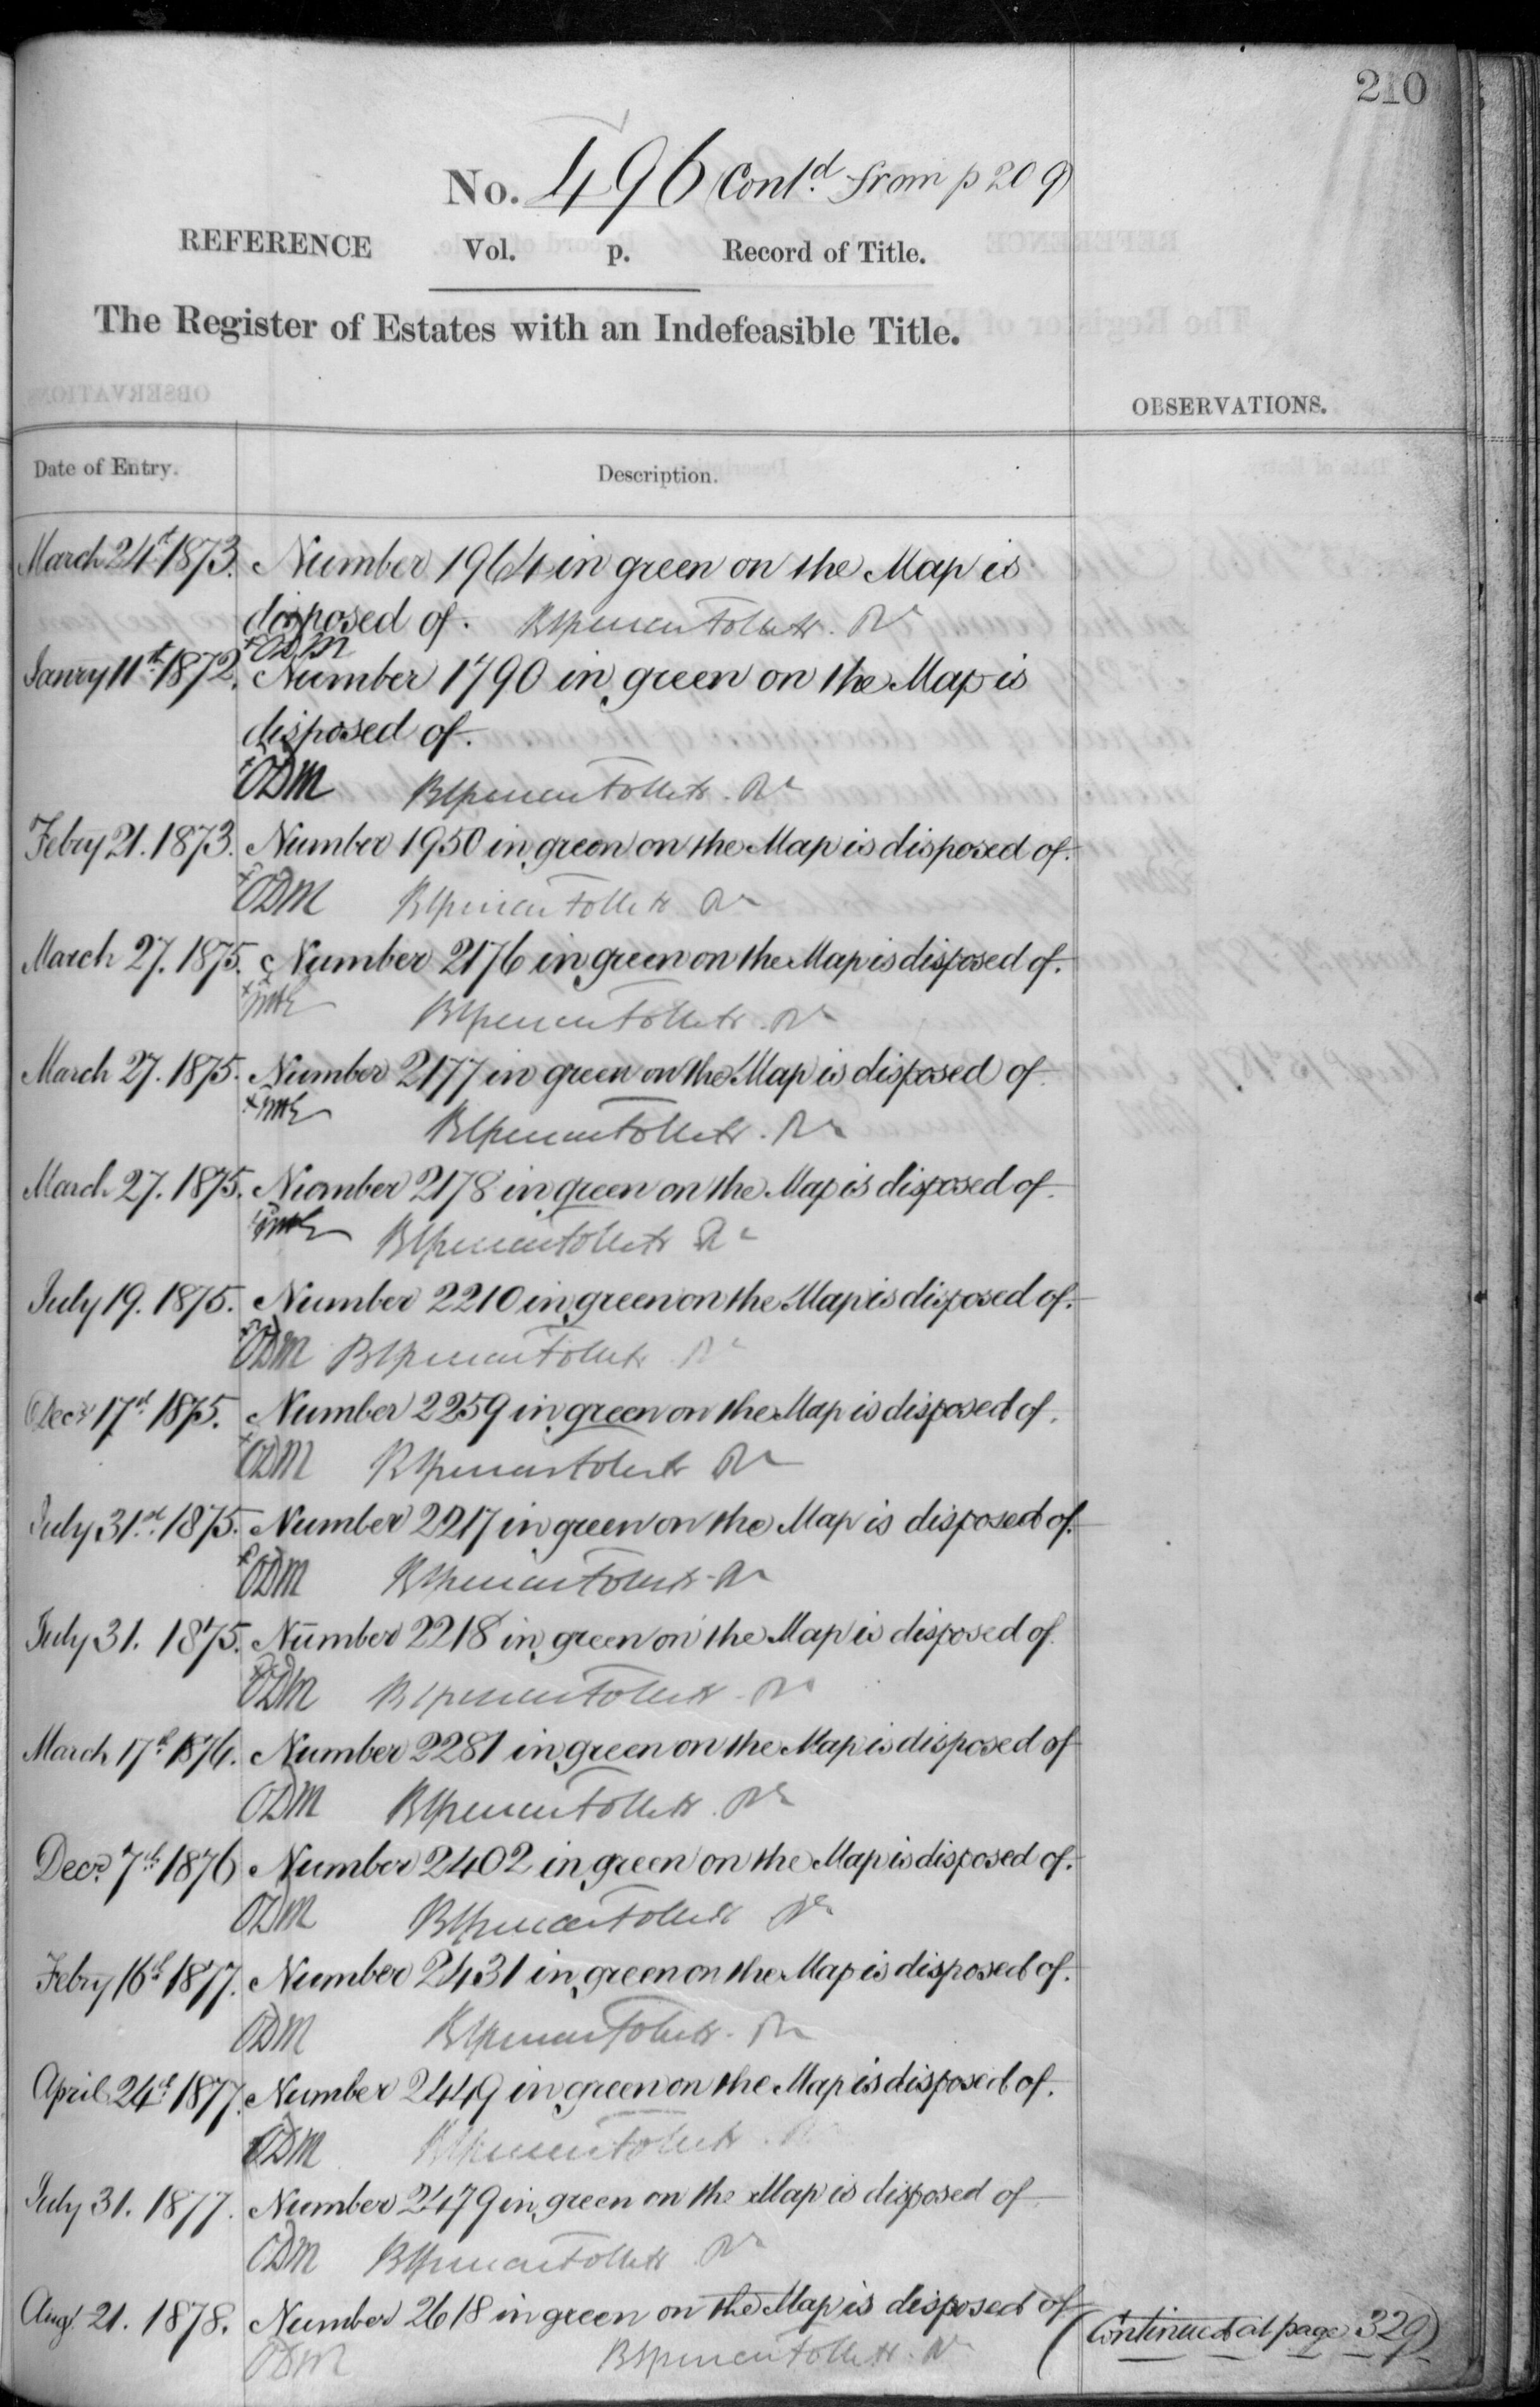 210
No. 496 Cont.d from p 209
REFERENCE Vol. p. Record of Title.
The Register of Estates with an Indefeasible Title.
OBSERVATIONS.
Date of Entry. Description.
March 24th 1873. Number 1964 in green on the Map is
disposed of.
ODM
Janry 11th 1872. Number 1790 in green on the Map is
disposed of.
ODM
Febry 21. 1873. Number 1950 in green on the Map is disposed of.
ODM
March 27. 1875. Number 2176 in green on the Map is disposed of.
March 27. 1875. Number 2177 in green on the Map is disposed of.
March 27. 1875. Number 2178 in green on the Map is disposed of.
July 19. 1875. Number 2210 in green on the Map is disposed of.
ODM
Decr 17th 1875. Number 2259 in green on the Map is disposed of.
ODM
July 31st 1875. Number 2217 in green on the Map is disposed of.
ODM
July 31. 1875. Number 2218 in green on the Map is disposed of.
ODM
March 17th 1876. Number 2281 in green on the Map is disposed of
ODM
Decr. 7th 1876 Number 2402 in green on the Map is disposed of.
ODM
Febry 16th 1877. Number 2431 in green on the Map is disposed of.
ODM
April 24th 1877. Number 2449 in green on the Map is disposed of.
ODM
July 31. 1877. Number 2479 in green on the Map is disposed of
ODM
Augt 21. 1878. Number 2618 in green on the Map is disposed of
(Continued at page 329)
ODM